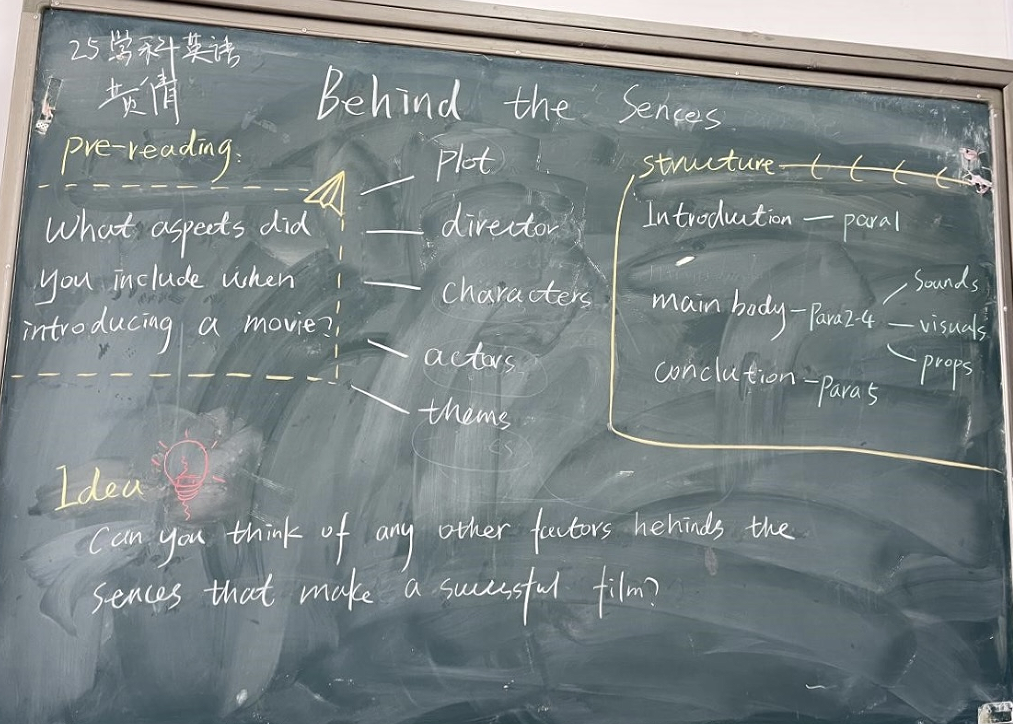 25学科英语
黄倩
Behind the Sences
pre-reading:
What aspects did
you include when
introducing a movie?
plot
director
characters
actors
thems
structure
Introduction — para1
main body - Para2-4
sounds
visuals
props
conclution - Para5
Idea
Can you think of any other factors hehinds the
sences that make a sucessful film?